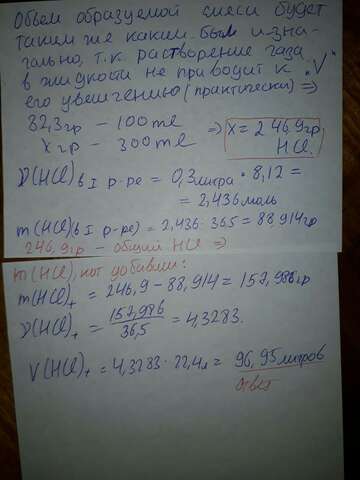 Объем образуемой смеси будет
таким же каким был изна-
чально, т.к. растворение газа
в жидкости не приводит к "V"
его увеличению (практически) ⇒
82,3гр – 100ml
xгр – 300ml ⇒ x = 246,9гр
HCl.
ν(HCl) в I р-ре = 0,3литра · 8,12 =
= 2,436моль
m(HCl) в I р-ре) = 2,436 · 36,5 = 88,914гр
246,9гр – общий HCl ⇒
m(HCl), кот добавили:
m(HCl)+ = 246,9 – 88,914 = 157,986гр
ν(HCl)+ = 157,986 / 36,5 = 4,3283.
V(HCl)+ = 4,3283 · 22,4л = 96,95литров
ответ